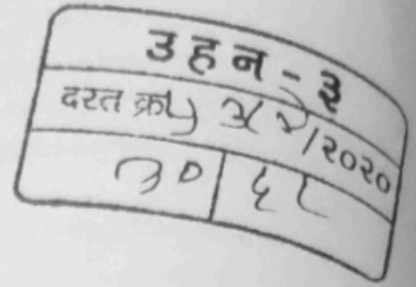 उहन - ३
दस्त क्र /२०२०
३० ५८